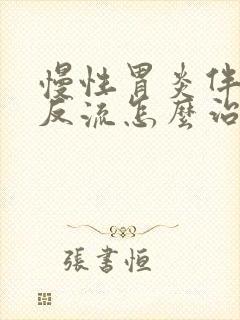 慢性胃炎伴
反流怎麼治
張書恒